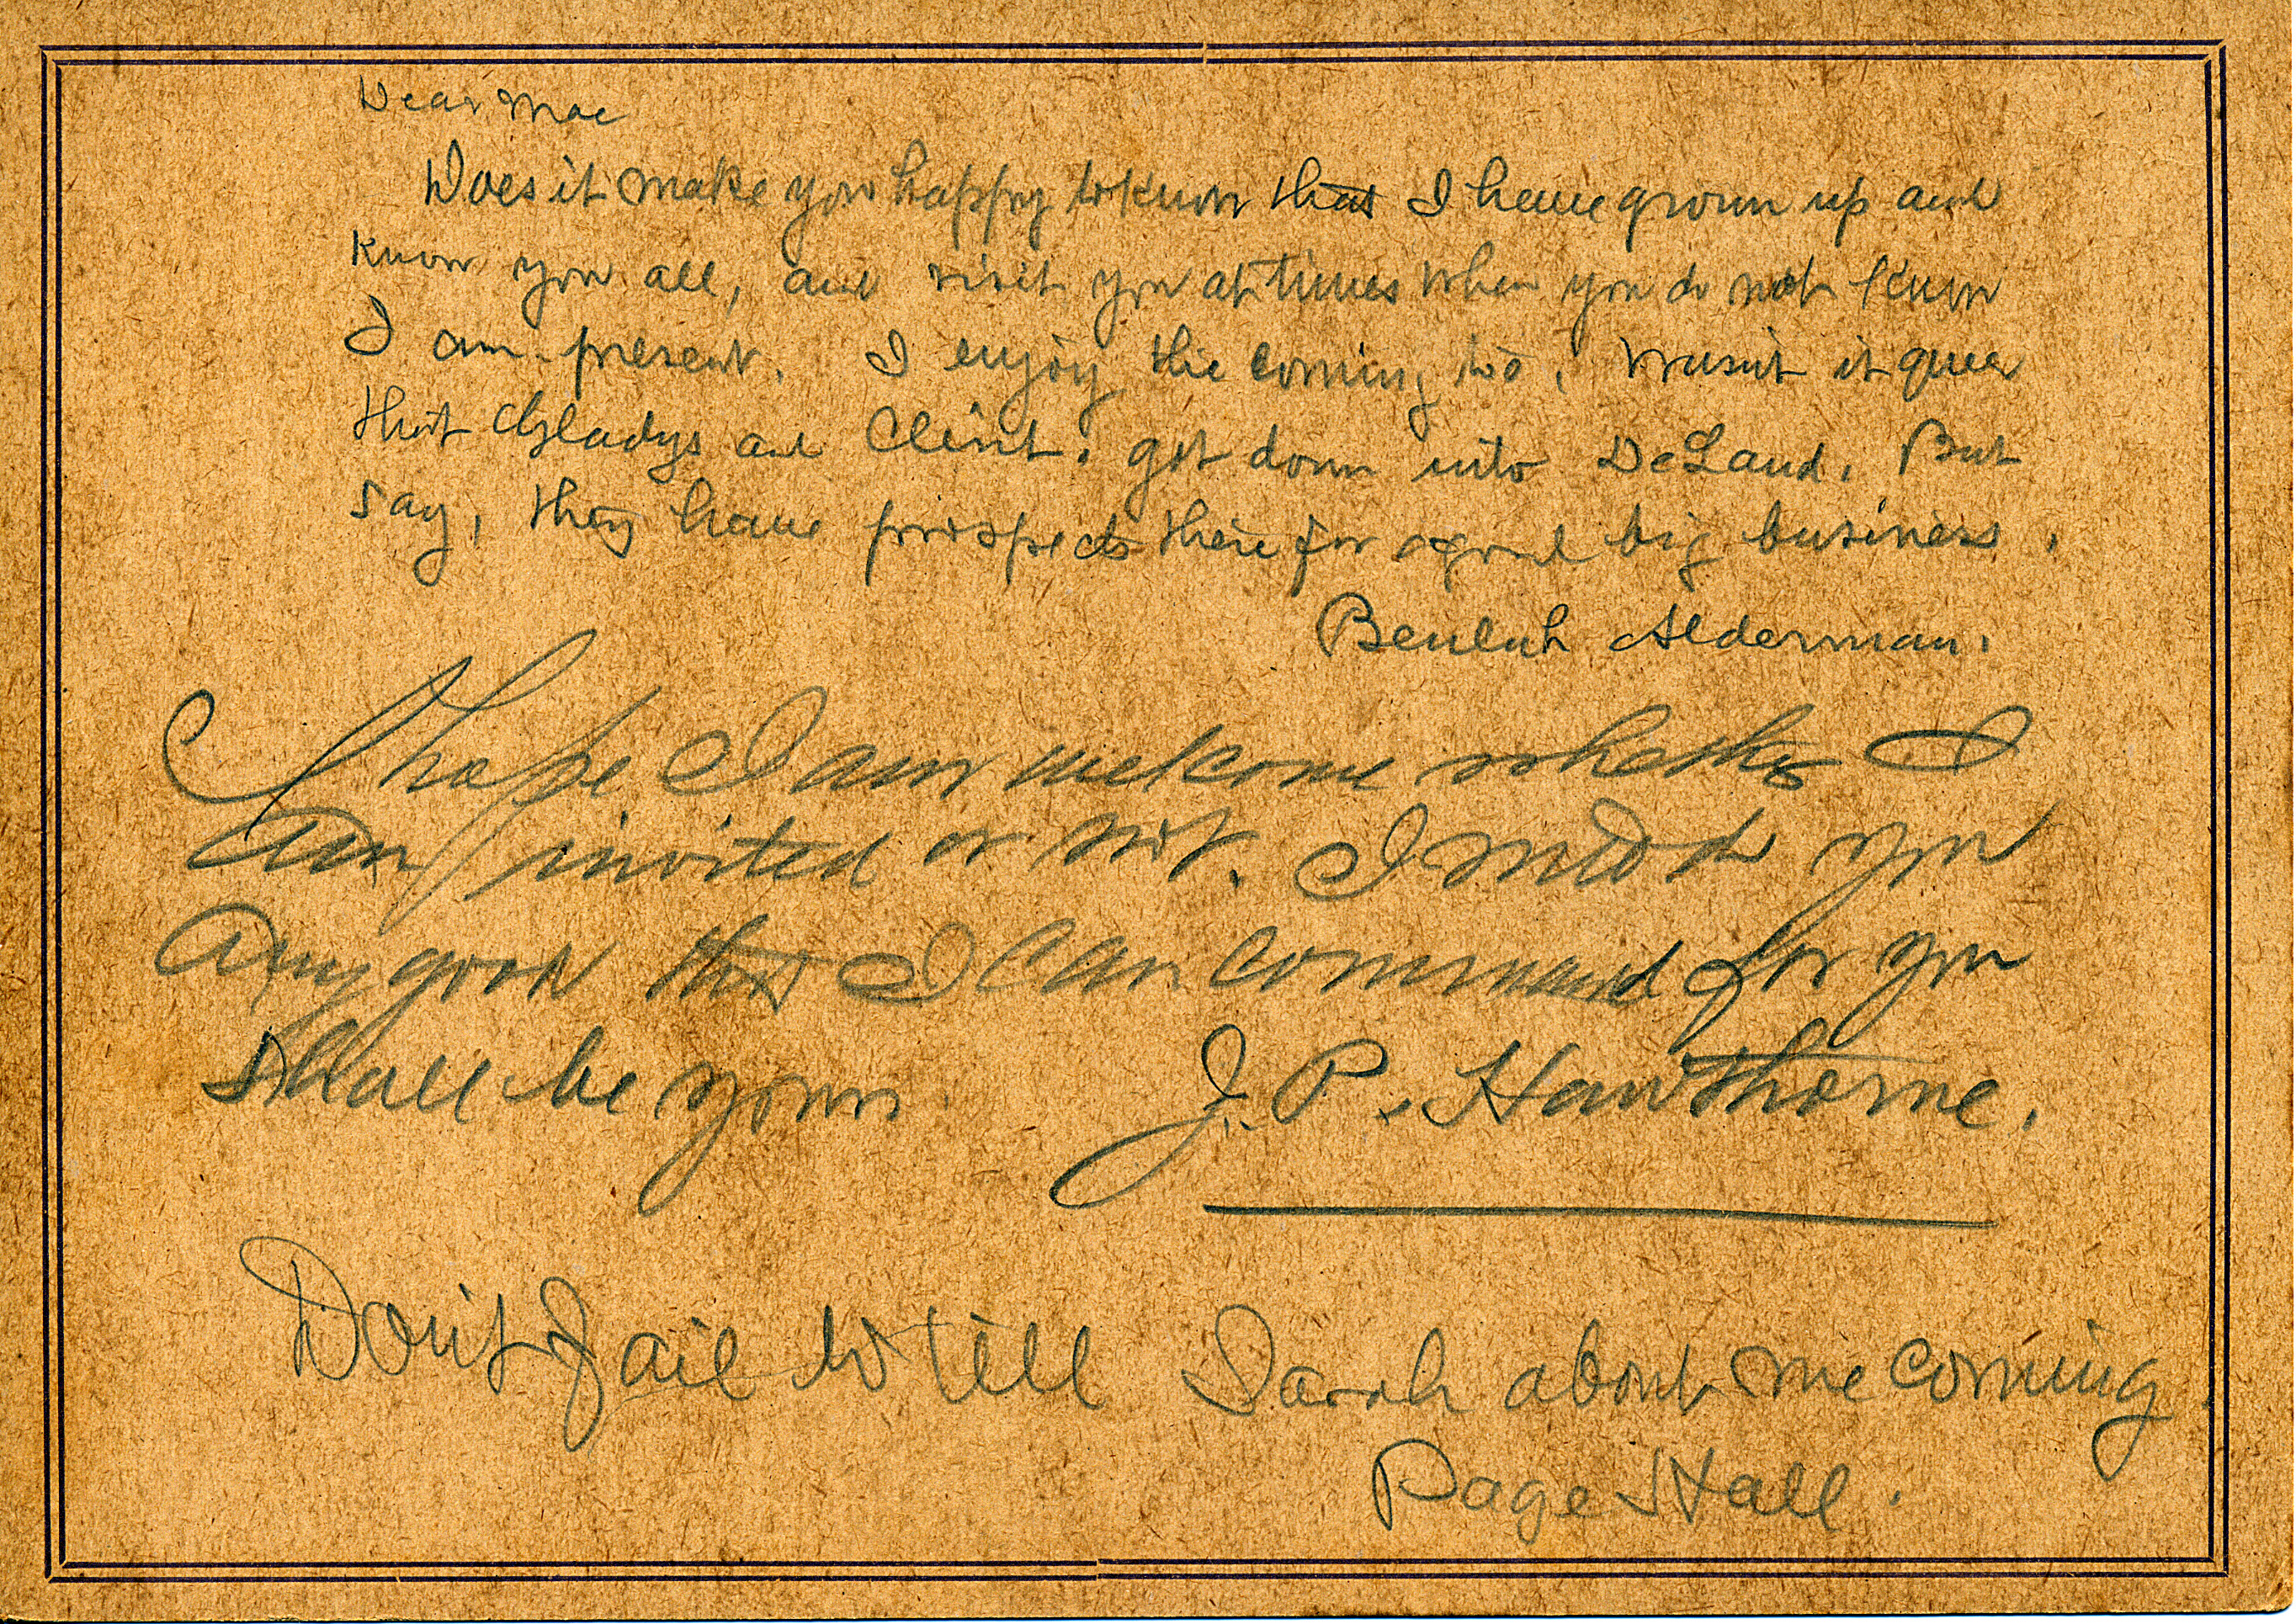 Dear Mae
Does it make you happy to know that I have grown up and
know you all, and visit you at times when you do not know
I am present. I enjoy the coming, too. Wasn't it queer
that Gladys and Clint. got down into DeLand. But
say, they have prospects there for a good big business.
Beulah Alderman.
I hope I am welcome whether I
am invited or not. I would do you
Any good that I can command for you
shall be yours
J. P. Hawthorne.
Don't fail to tell Sarah about me coming
Page Hall.